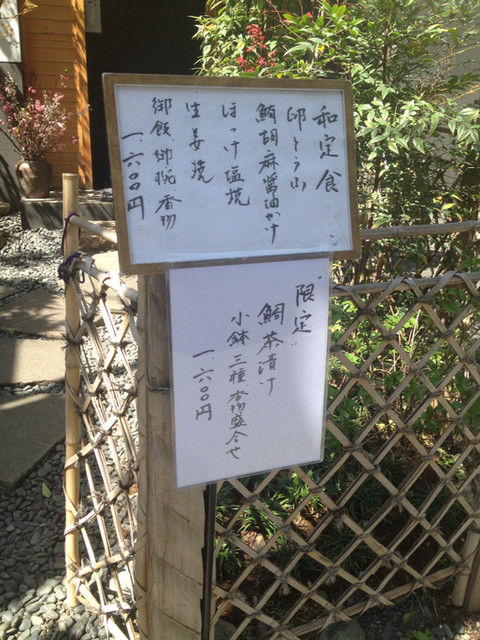 和定食
卵とうふ
鯛胡麻醤油かけ
ほっけ塩焼
生姜焼
御飯 御椀 香物
一、六〇〇円
"限定"
鯛茶漬け
小鉢三種 香物盛合せ
一、六〇〇円